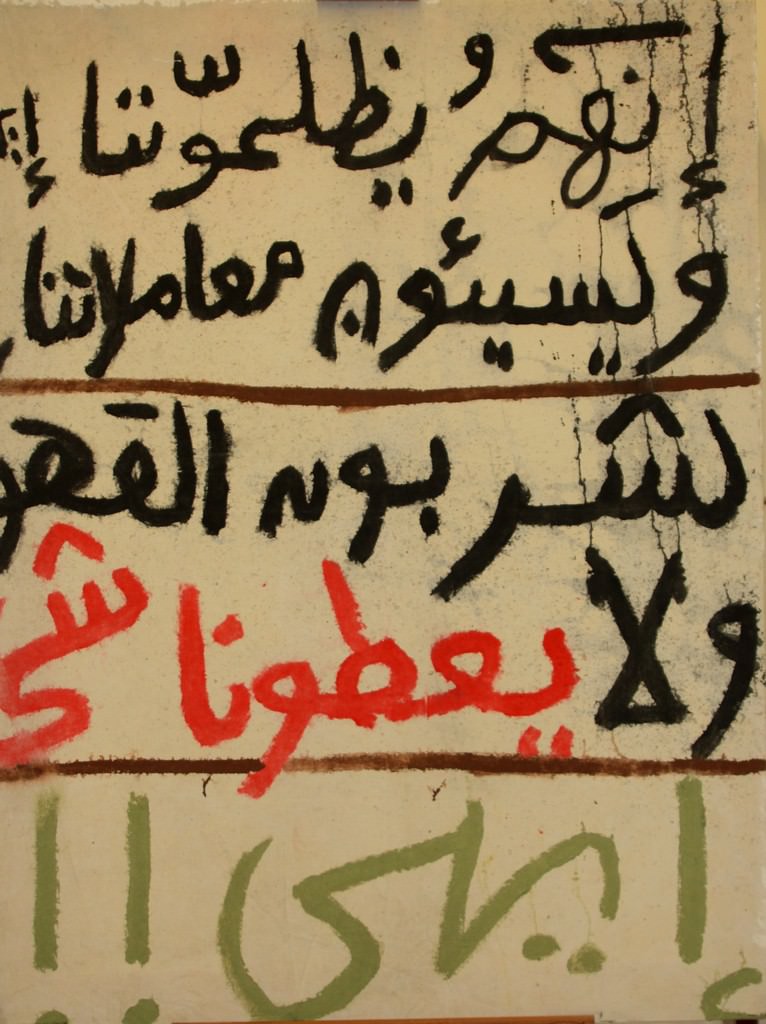 إنهم و يظلموّننا
ويسيئون معاملاتنا
يشربون القهو
ولا يعطونا شي
إيلى !!